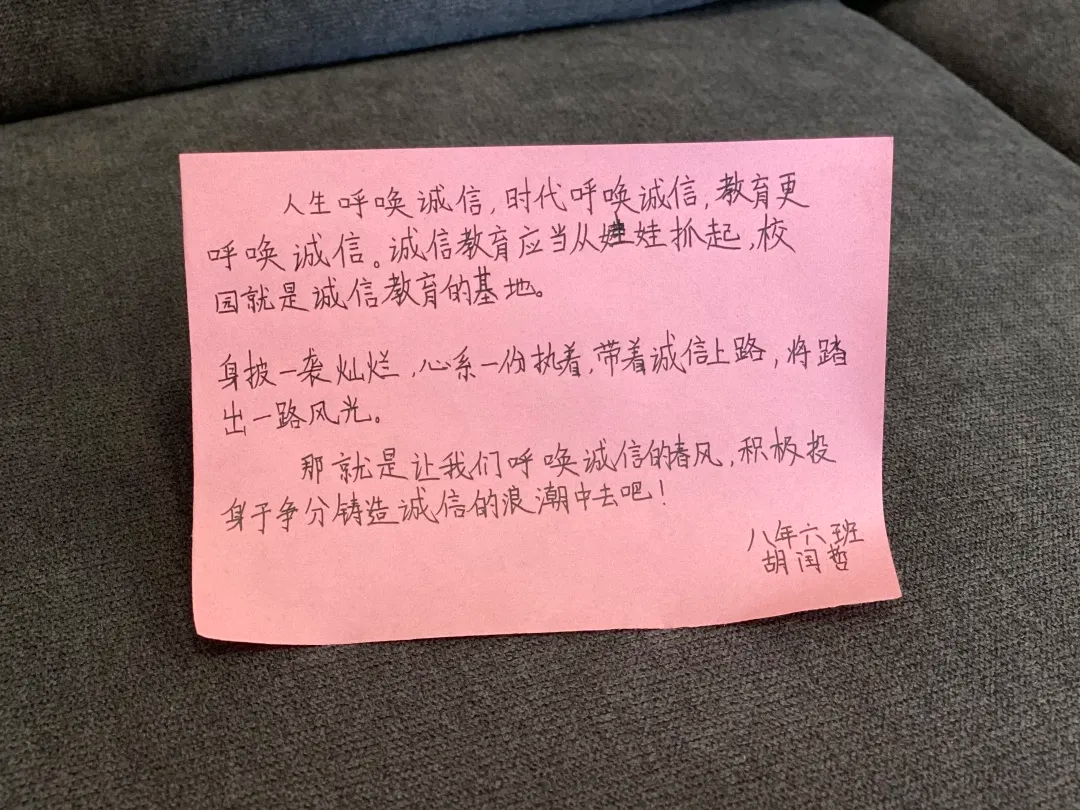 人生呼唤诚信，时代呼唤诚信，教育更
呼唤诚信。诚信教育应当从娃娃抓起，校
园就是诚信教育的基地。
身披一袭灿烂，心系一份执着，带着诚信上路，将踏
出一路风光。
那就是让我们呼唤诚信的春风，积极投
身于争分铸造诚信的浪潮中去吧！
八年六班
胡闰哲